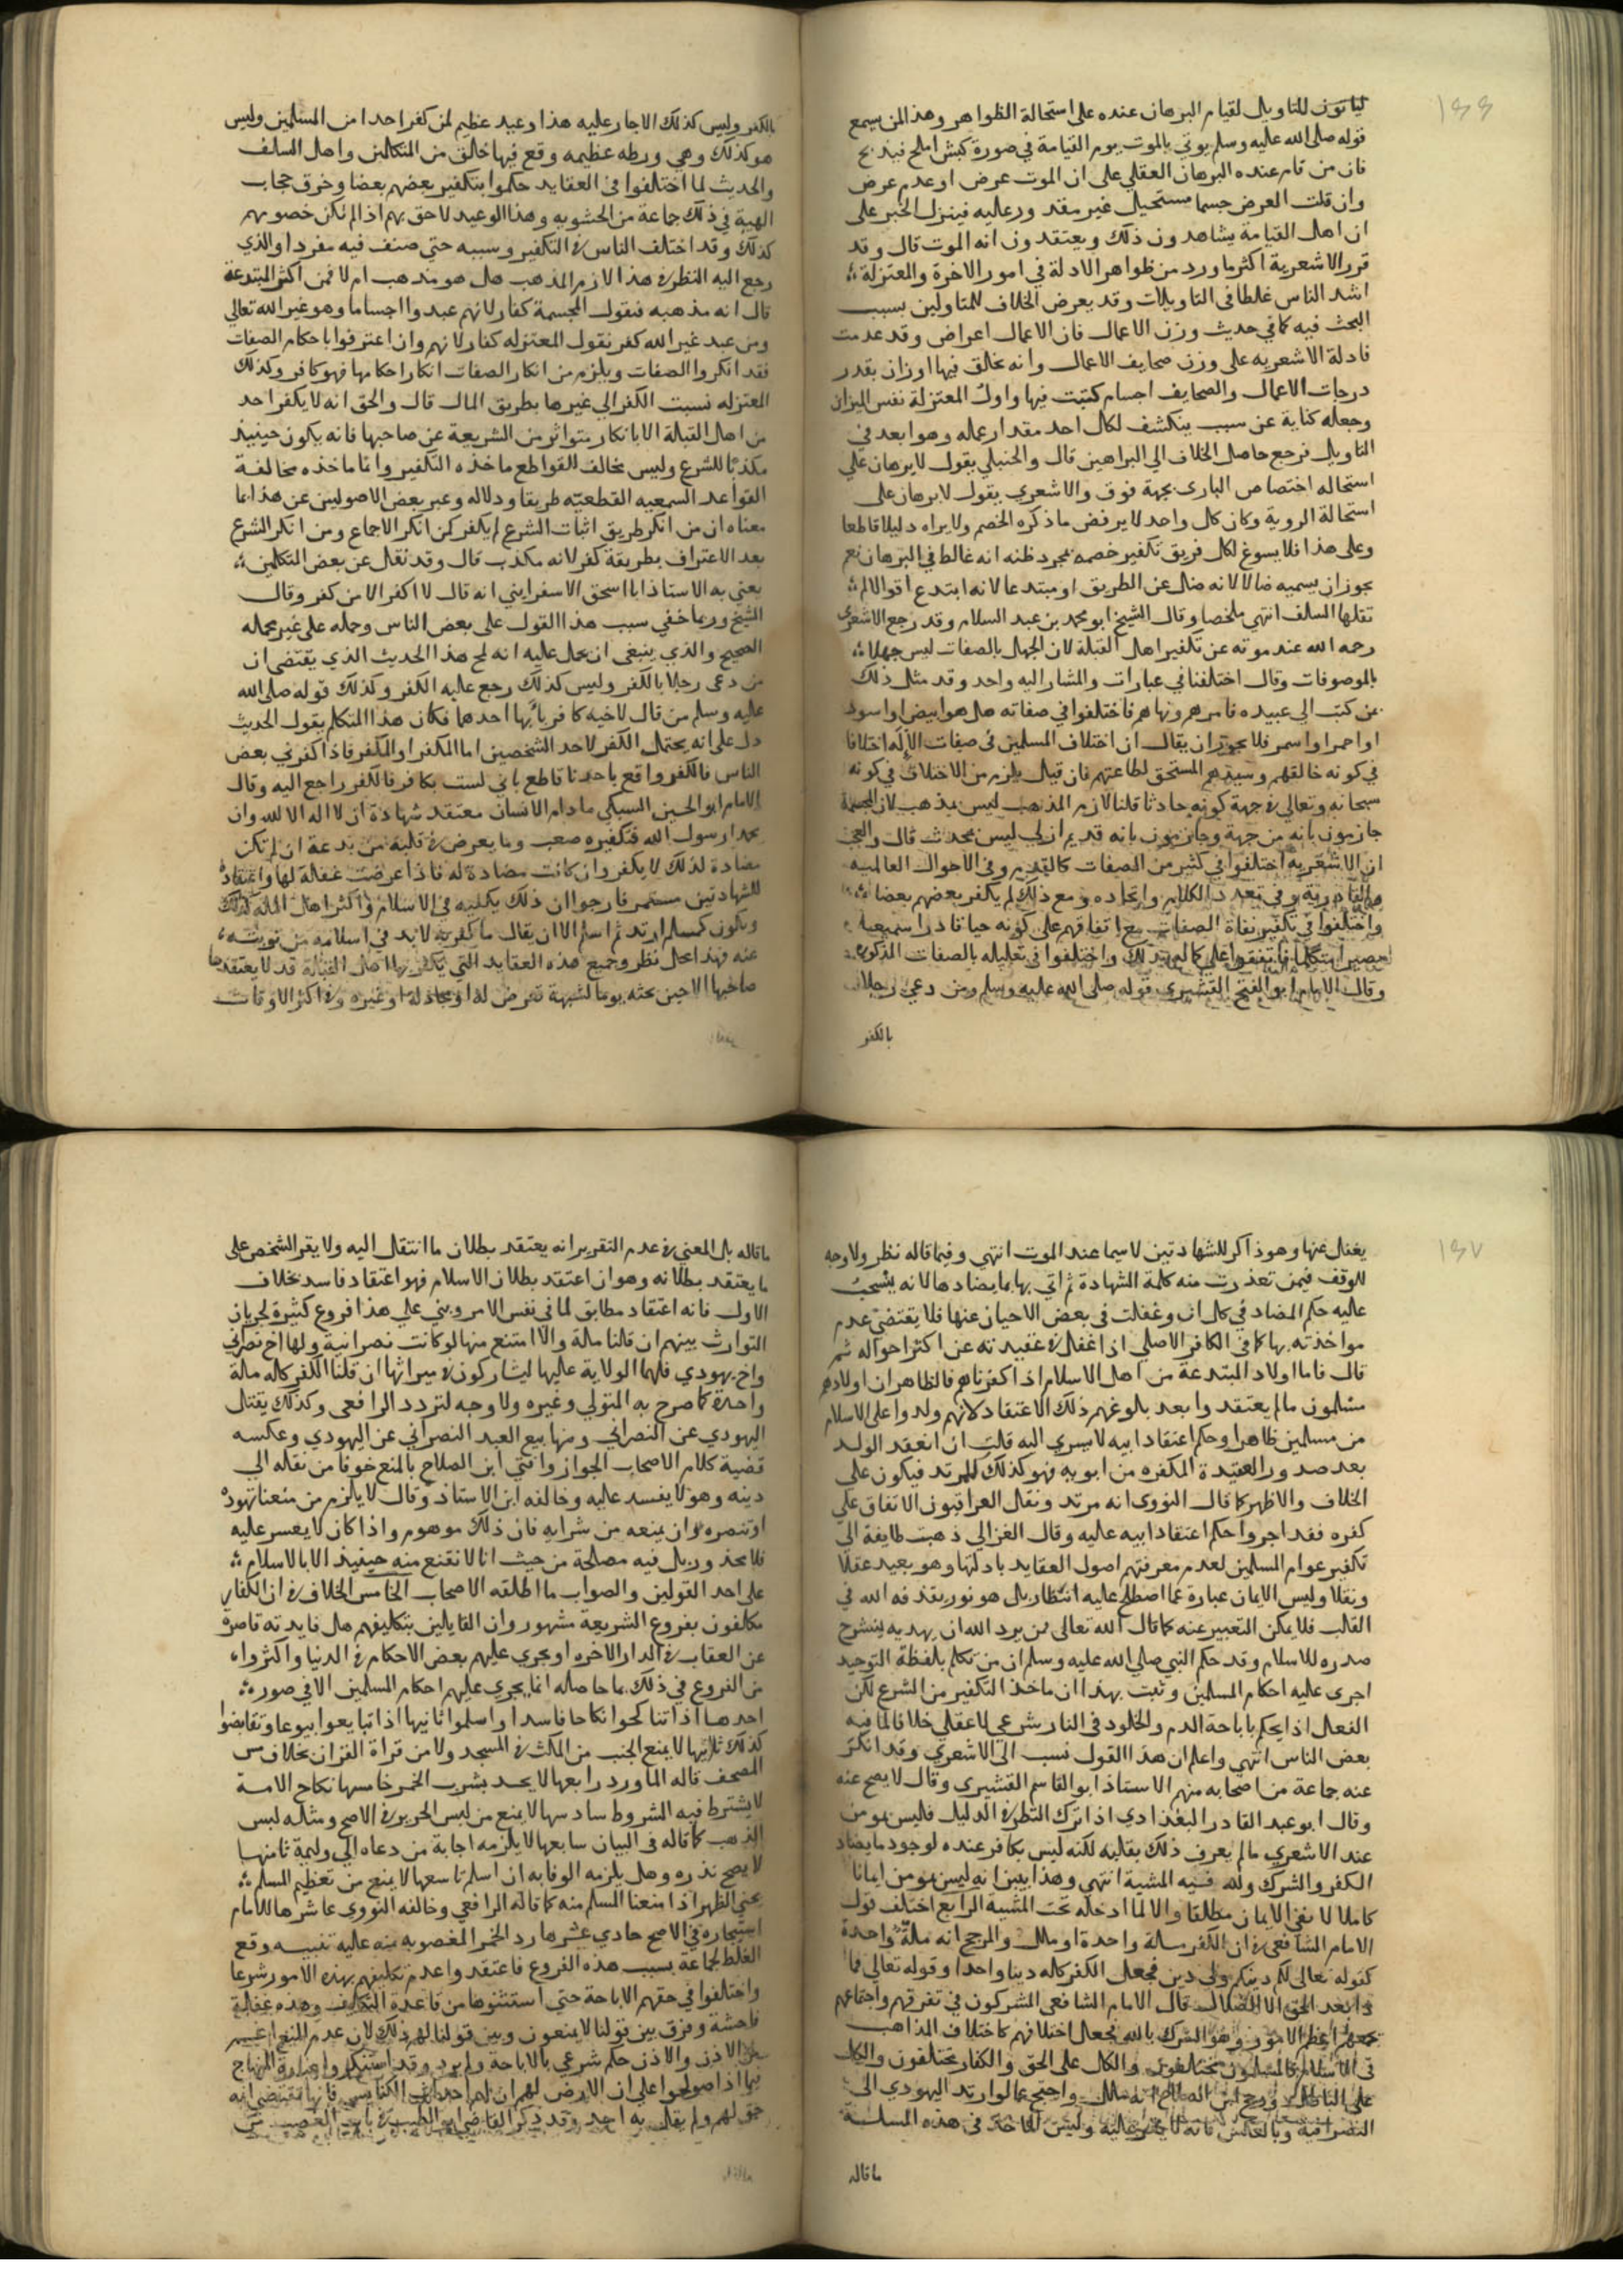 ١٤٦
لياتون للتاويل لقيام البرهان عنده على استحالة الظواهر وهذا لمن يسمع
قوله صلى الله عليه وسلم يوتي بالموت يوم القيامة في صورة كبش املح فيذبح
فان من قام عنده البرهان العقلي على ان الموت عرض او عدم عرض
وان قلت العرض جسما مستحيل غير مقدور عليه فينزل الخبر على
ان اهل القيامة يشاهدون ذلك ويعتقدون انه الموت قال وقد
قرر الاشعرية اكثر ما ورد من ظواهر الادلة في امور الاخرة والمعتزلة
اشد الناس غلطا في التاويلات وقد يعرض الخلاف للمتاولين بسبب
البحث فيه كما في حديث وزن الاعمال فان الاعمال اعراض وقد عدمت
فادلة الاشعريه على وزن صحايف الاعمال وانه يخالق فيها اوزان بقدر
درجات الاعمال والصحايف اجسام كتبت فيها واول المعتزلة نفس الميزان
وجعله كناية عن سبب ينكشف لكل احد مقدار عمله وهو ابعد في
التاويل فرجع حاصل الخلاف الى البراهين قال والحنبلي يقول لا برهان علي
استحاله اختصاص البارى بجهة فوق والاشعري يقول لا برهان على
استحالة الروية وكان كل واحد لا يرفض ما ذكره الخصم ولا يراه دليلا قاطعا
وعلى هذا فلا يسوغ لكل فريق تكفير خصمه بمجرد ظنه انه غالط في البرهان نعم
يجوز ان يسميه ضالا لانه ضال عن الطريق او مبتدعا لانه ابتدع اقوالا لم
تقلها السلف انتهي ملخصا وقال الشيخ ابو محمد بن عبد السلام وقد رجع الاشعري
رحمه الله عند موته عن تكفير اهل القبلة لان الجهل بالصفات ليس جهلا
بالموصوفات وقال اختلفنا في عبارات والمشار اليه واحد وقد مثل ذلك
بمن كتب الى عبيده فامرهم ونهاهم فاختلفوا في صفاته هل هو ابيض او اسود
او احمر او اسمر فلا يجوز ان يقال ان اختلاف المسلمين في صفات الاله اختلافا
في كونه خالقهم وسيدهم المستحق لطاعتهم فان قيل يلزم من الاختلاف في كونه
سبحانه وتعالى في جهة كونه حادثا قلنا لازم المذهب ليس بمذهب لان المجسمة
جازمون بانه من جهة وجازمون بانه قديم ازلي ليس بمحدث قال والعجب
ان الاشعريه اختلفوا في كثير من الصفات كالقدم وفي الاحوال العالميه
والقادرية وفي تعدد الكلام واتحاده ومع ذلك لم يكفر بعضهم بعضا
واختلفوا في تكفير نفاة الصفات مع اتفاقهم على كونه حيا قادرا سميعا
بصيرا متكلما فاتفقوا على كماله بذلك واختلفوا في تعليله بالصفات المذكورة
وقال الامام ابو الفتح القشيري قوله صلى الله عليه وسلم ومن دعي رجلا
بالكفر
بالكفر وليس كذلك الا حار عليه هذا وعيد عظيم لمن كفر احدا من المسلمين وليس
هو كذلك وهي ورطه عظيمه وقع فيها خالق من المتكلمين واهل السلف
والحديث لما اختلفوا في العقايد حكموا بتكفير بعضهم بعضا وخرق حجاب
الهيبة في ذلك جماعة من الحشويه وهذا الوعيد لاحق بهم اذا لم تكن خصومهم
كذلك وقد اختلف الناس في التكفير وسببه حتي صنف فيه مفردا والذي
رجع اليه النظر في هذا الازم المذهب هل هو مذهب ام لا فمن اكثر المبتدعة
قال انه مذهبه فنقول المجسمة كفار لانهم عبدوا اجساما وهو غير الله تعالى
ومن عبد غير الله كفر نقول المعتزله كفار لانهم وان اعترفوا باحكام الصفات
فقد انكروا الصفات ويلزم من انكار الصفات انكار احكامها فهو كافر وكذلك
المعتزله نسبت الكفر الي غيرها بطريق المال قال والحق انه لا يكفر احد
من اهل القبلة الا بانكار متواتر من الشريعة عن صاحبها فانه يكون حينيذ
مكذبا للشرع وليس مخالف القواطع ماخذه التكفير وانما ماخذه مخالفة
القواعد السمعيه القطعيه طريقا ودلاله وعبر بعض الاصوليين عن هذا بما
معناه ان من انكر طريق اثبات الشرع لم يكفر كمن انكر الاجماع ومن انكر الشرع
بعد الاعتراف بطريقة كفر لانه مكذب قال وقد نقل عن بعض المتكلمين
يعني به الاستاذ ابا اسحق الاسفرايني انه قال لا اكفر الا من كفرني وقال
الشيخ وربما خفي سبب هذا القول على بعض الناس وحمله على غير محمله
الصحيح والذي ينبغي ان يحمل عليه انه لمح هذا الحديث الذي يقتضي ان
من دعى رجلا بالكفر وليس كذلك رجع عليه الكفر وكذلك قوله صلى الله
عليه وسلم من قال لاخيه كافر باء بها احدهما فكان هذا المتكلم يقول الحديث
دل على انه يحتمل الكفر لاحد الشخصين اما المكفر او المكفر فاذا اكفرني بعض
الناس فالكفر واقع باحدنا قاطع باني لست بكافر فالكفر راجع اليه وقال
الامام ابو الحسن السبكي ما دام الانسان معتقد شهادة ان لا اله الا الله وان
محمدا رسول الله فتكفيره صعب وما يعرض في قلبه من بدعة ان لم تكن
مضادة لذلك لا يكفر وان كانت مضادة له فاذا عرضت غفلة لها واعتقاده
للشهادتين مستمر فارجوا ان ذلك يكفيه في الاسلام واكثر اهل الملة كذلك
ويكون كمسلم ارتد ثم اسلم الا ان يقال ما كفر به لا بد في اسلامه من توبته
عنه فهذا محل نظر وجميع هذه العقايد التي يكفر بها اهل القبلة قد لا يعتقدها
صاحبها الا حين بحثه يوما لشبهة تعرض له او مجادلة او غيره وفي اكثر الاوقات
١٤٧
يغفل عنها وهو ذاكر للشهادتين لا سيما عند الموت انتهى وفيما قاله نظر ولا وجه
للوقف فيمن تعذرت منه كلمة الشهادة ثم اتي بها بما يضادها لانه ينسحب
عليه حكم المضاد في كل ان وغفلت في بعض الاحيان عنها فلا يقتضي عدم
مواخذته بها كما في الكافر الاصلي اذا غفل في عقيدته عن اكثر احواله ثم
قال فاما اولاد المبتدعة من اهل الاسلام اذا كفرناهم فالظاهر ان اولادهم
مسلمون مالم يعتقدوا بعد بلوغهم ذلك الاعتقاد لانهم ولدوا على الاسلام
من مسلمين ظاهرا وحكم اعتقاد ابيه لا يسري اليه قلت ان انعقد الولد
بعد صدور العقيدة المكفره من ابويه فهو كذلك للمرتد فيكون على
الخلاف والاظهر كما قال النووى انه مرتد ونقل العراقيون الاتفاق علي
كفره فقد اجروا حكم اعتقاد ابيه عليه وقال الغزالي ذهبت طايفة الي
تكفير عوام المسلمين لعدم معرفتهم اصول العقايد بادلتها وهو بعيد عقلا
ونقلا وليس الايمان عبارة عما اصطلح عليه النظار بل هو نور يقذفه الله في
القلب فلا يمكن التعبير عنه كما قال الله تعالى فمن يرد الله ان يهديه يشرح
صدره للاسلام وقد حكم النبي صلى الله عليه وسلم ان من تكلم بلفظة التوحيد
اجرى عليه احكام المسلمين وثبت بهذا ان ماخذ التكفير من الشرع لكن
الفعل اذ الحكم باباحة الدم والخلود في النار شرعي لا عقلي خلافا لما فيه
بعض الناس انتهي واعلم ان هذا القول نسب الى الاشعري وقد انكر
عنه جماعة من اصحابه منهم الاستاذ ابو القاسم القشيري وقال لا يصح عنه
وقال ابو عبد القادر البغدادي اذا ترك النظر في الدليل فليس بمومن
عند الاشعري مالم يعرف ذلك بقلبه لكنه ليس بكافر عنده لوجود ما يضاد
الكفر والشرك ولله فيه المشية انتهي وهذا يبين انه ليس بمومن ايمانا
كاملا لا بنفي الايمان مطلقا والا لما ادخله تحت المشيية الرابع اختلف قول
الامام الشافعي في ان الكفر ملة واحدة او ملل والمرجح انه ملة واحدة
كقوله تعالى لكم دينكم ولي دين فجعل الكفر كله دينا واحدا وقوله تعالى فما
ذا بعد الحق الا الضلال قال الامام الشافعى المشركون في تفرقهم واجتماعهم
يجمعهم اعظم الامور وهو الشرك بالله فجعل اختلافهم كاختلاف المذاهب
في الاسلام فالمسلمون مختلفون والكل على الحق والكفار مختلفون والكل
على الباطل ورجح ابن الصلاح انه ملل واحتج بما لو ارتد اليهودي الى
النصرانية وبالعكس فانه لا يقر عليه وليس الماخذ في هذه المسلة
ما قاله
ما قاله بل المعني في عدم التقرير انه يعتقد بطلان ما انتقل اليه ولا يقر الشخص على
ما يعتقد بطلانه وهو ان اعتقد بطلان الاسلام فهو اعتقاد فاسد بخلاف
الاول فانه اعتقاد مطابق لما في نفس الامر وبني علي هذا فروع كثيرة لجريان
التوارث بينهم ان قلنا ملة والا امتنع منها لو كانت نصرانية ولها اخ نصراني
واخ يهودي فلهما الولاية عليها ليشاركون في ميراثها ان قلنا الكفر كله ملة
واحدة كما صرح به المتولي وغيره ولا وجه لتردد الرافعى وكذلك يقتل
اليهودي عن النصراني ومنها بيع العبد النصراني عن اليهودي وعكسه
قضية كلام الاصحاب الجواز وافتي ابن الصلاح بالمنع خوفا من نقله الي
دينه وهو لا يفسد عليه وخالفه ابن الاستاذ وقال لا يلزم من منعنا تهوده
او تنصره وان يمنعه من شرايه فان ذلك موهوم واذا كان لا يعسر عليه
فلا محذور بل فيه مصلحة من حيث انا لا نقنع منه حينيذ الا بالاسلام
على احد القولين والصواب ما اطلقه الاصحاب الخامس الخلاف في ان الكفار
مكلفون بفروع الشريعة مشهور وان القايلين بتكليفهم هل فايدته قاصرة
عن العقاب في الدار الاخره او يجري عليهم بعض الاحكام في الدنيا واكثروا
من الفروع في ذلك بما حاصله انما يجري عليهم احكام المسلمين الا في صورة
احدها اذا تناكحوا نكاحا فاسدا واسلموا ثانيها اذا تبايعوا بيوعا وتقابضوا
كذلك ثلاثها لا يمنع الجنب من المكث في المسجد ولا من قراة القران بخلاف مس
المصحف قاله الماوردي رابعها لا يحد بشرب الخمر خامسها نكاح الامة
لا يشترط فيه الشروط سادسها لا يمنع من لبس الحرير في الاصح ومثله لبس
الذهب كما قاله في البيان سابعها لا يلزمه اجابة من دعاه الي وليمة ثامنها
لا يصح نذره وهل يلزمه الوفا به ان اسلم تاسعها لا يمنع من تعظيم المسلم
بحني الظهر اذا منعنا المسلم منه كما قاله الرافعي وخالفه النووى عاشرها للامام
استيجاره في الاصح حادي عشرها رد الخمر المغصوبه منه عليه تنبيه وقع
الغلط لجماعة بسبب هذه الفروع فاعتقدوا عدم تكليفهم بهذه الامور شرعا
واختلفوا في حقهم الاباحة حتي استثنوها من قاعدة التكليف وهذه غفلة
فاحشة وفرق بين قولنا لا يمنعون وبين قولنا لهم ذلك لان عدم المنع اعم
من الاذن والاذن حكم شرعي بالاباحة ولم يرد وقد استنكروا عبارة المنهاج
فيما اذا صولحوا على ان الارض لهم ان لهم احداث الكنايس فانها تقتضي انه
حق لهم ولم يقل به احد وقد ذكر القاضي ابو الطيب في باب الغصب